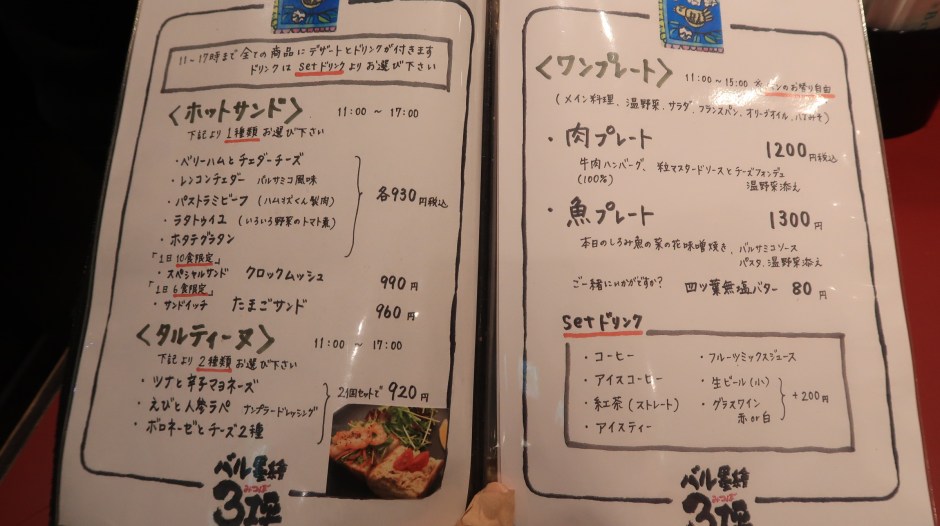 11~17時まで全ての商品にデザートとドリンクが付きます
ドリンクは setドリンクよりお選び下さい
<ホットサンド> 11:00 ~ 17:00
下記より1種類お選び下さい
・ベリーハムとチェダーチーズ
・レンコンチェダー バルサミコ風味
・パストラミビーフ (ハム・ソーズくん製肉)
・ラタトゥイユ (いろいろ野菜のトマト煮)
・ホタテグラタン
各930円税込
「1日10食限定」
・スペシャルサンド クロックムッシュ 990円
「1日6食限定」
・サンドイッチ たまごサンド 960円
<タルティーヌ> 11:00 ~ 17:00
下記より2種類お選び下さい
・ツナと辛子マヨネーズ
・えびと人参ラペ ナンプラードレッシング
・ボロネーゼとチーズ2種
2個セットで920円
バル 墨繪
みつば
<ワンプレート> 11:00 ~ 15:00 パンのお替り自由
(メイン料理、温野菜、サラダ、フランスパン、オリーブオイル、)
・肉プレート 1200円税込
牛肉ハンバーグ、粒マスタードソースとチーズフォンデュ
(100%) 温野菜添え
・魚プレート 1300円
本日のしろみ魚の菜の花味噌焼き、バルサミコソース
パスタ、温野菜添え
ご一緒にいかがですか? 四ツ葉無塩バター 80円
setドリンク
・コーヒー
・アイスコーヒー
・紅茶(ストレート)
・アイスティー
・フルーツミックスジュース
・生ビール(小)
・グラスワイン
赤or白
+200円
バル 墨繪
みつば